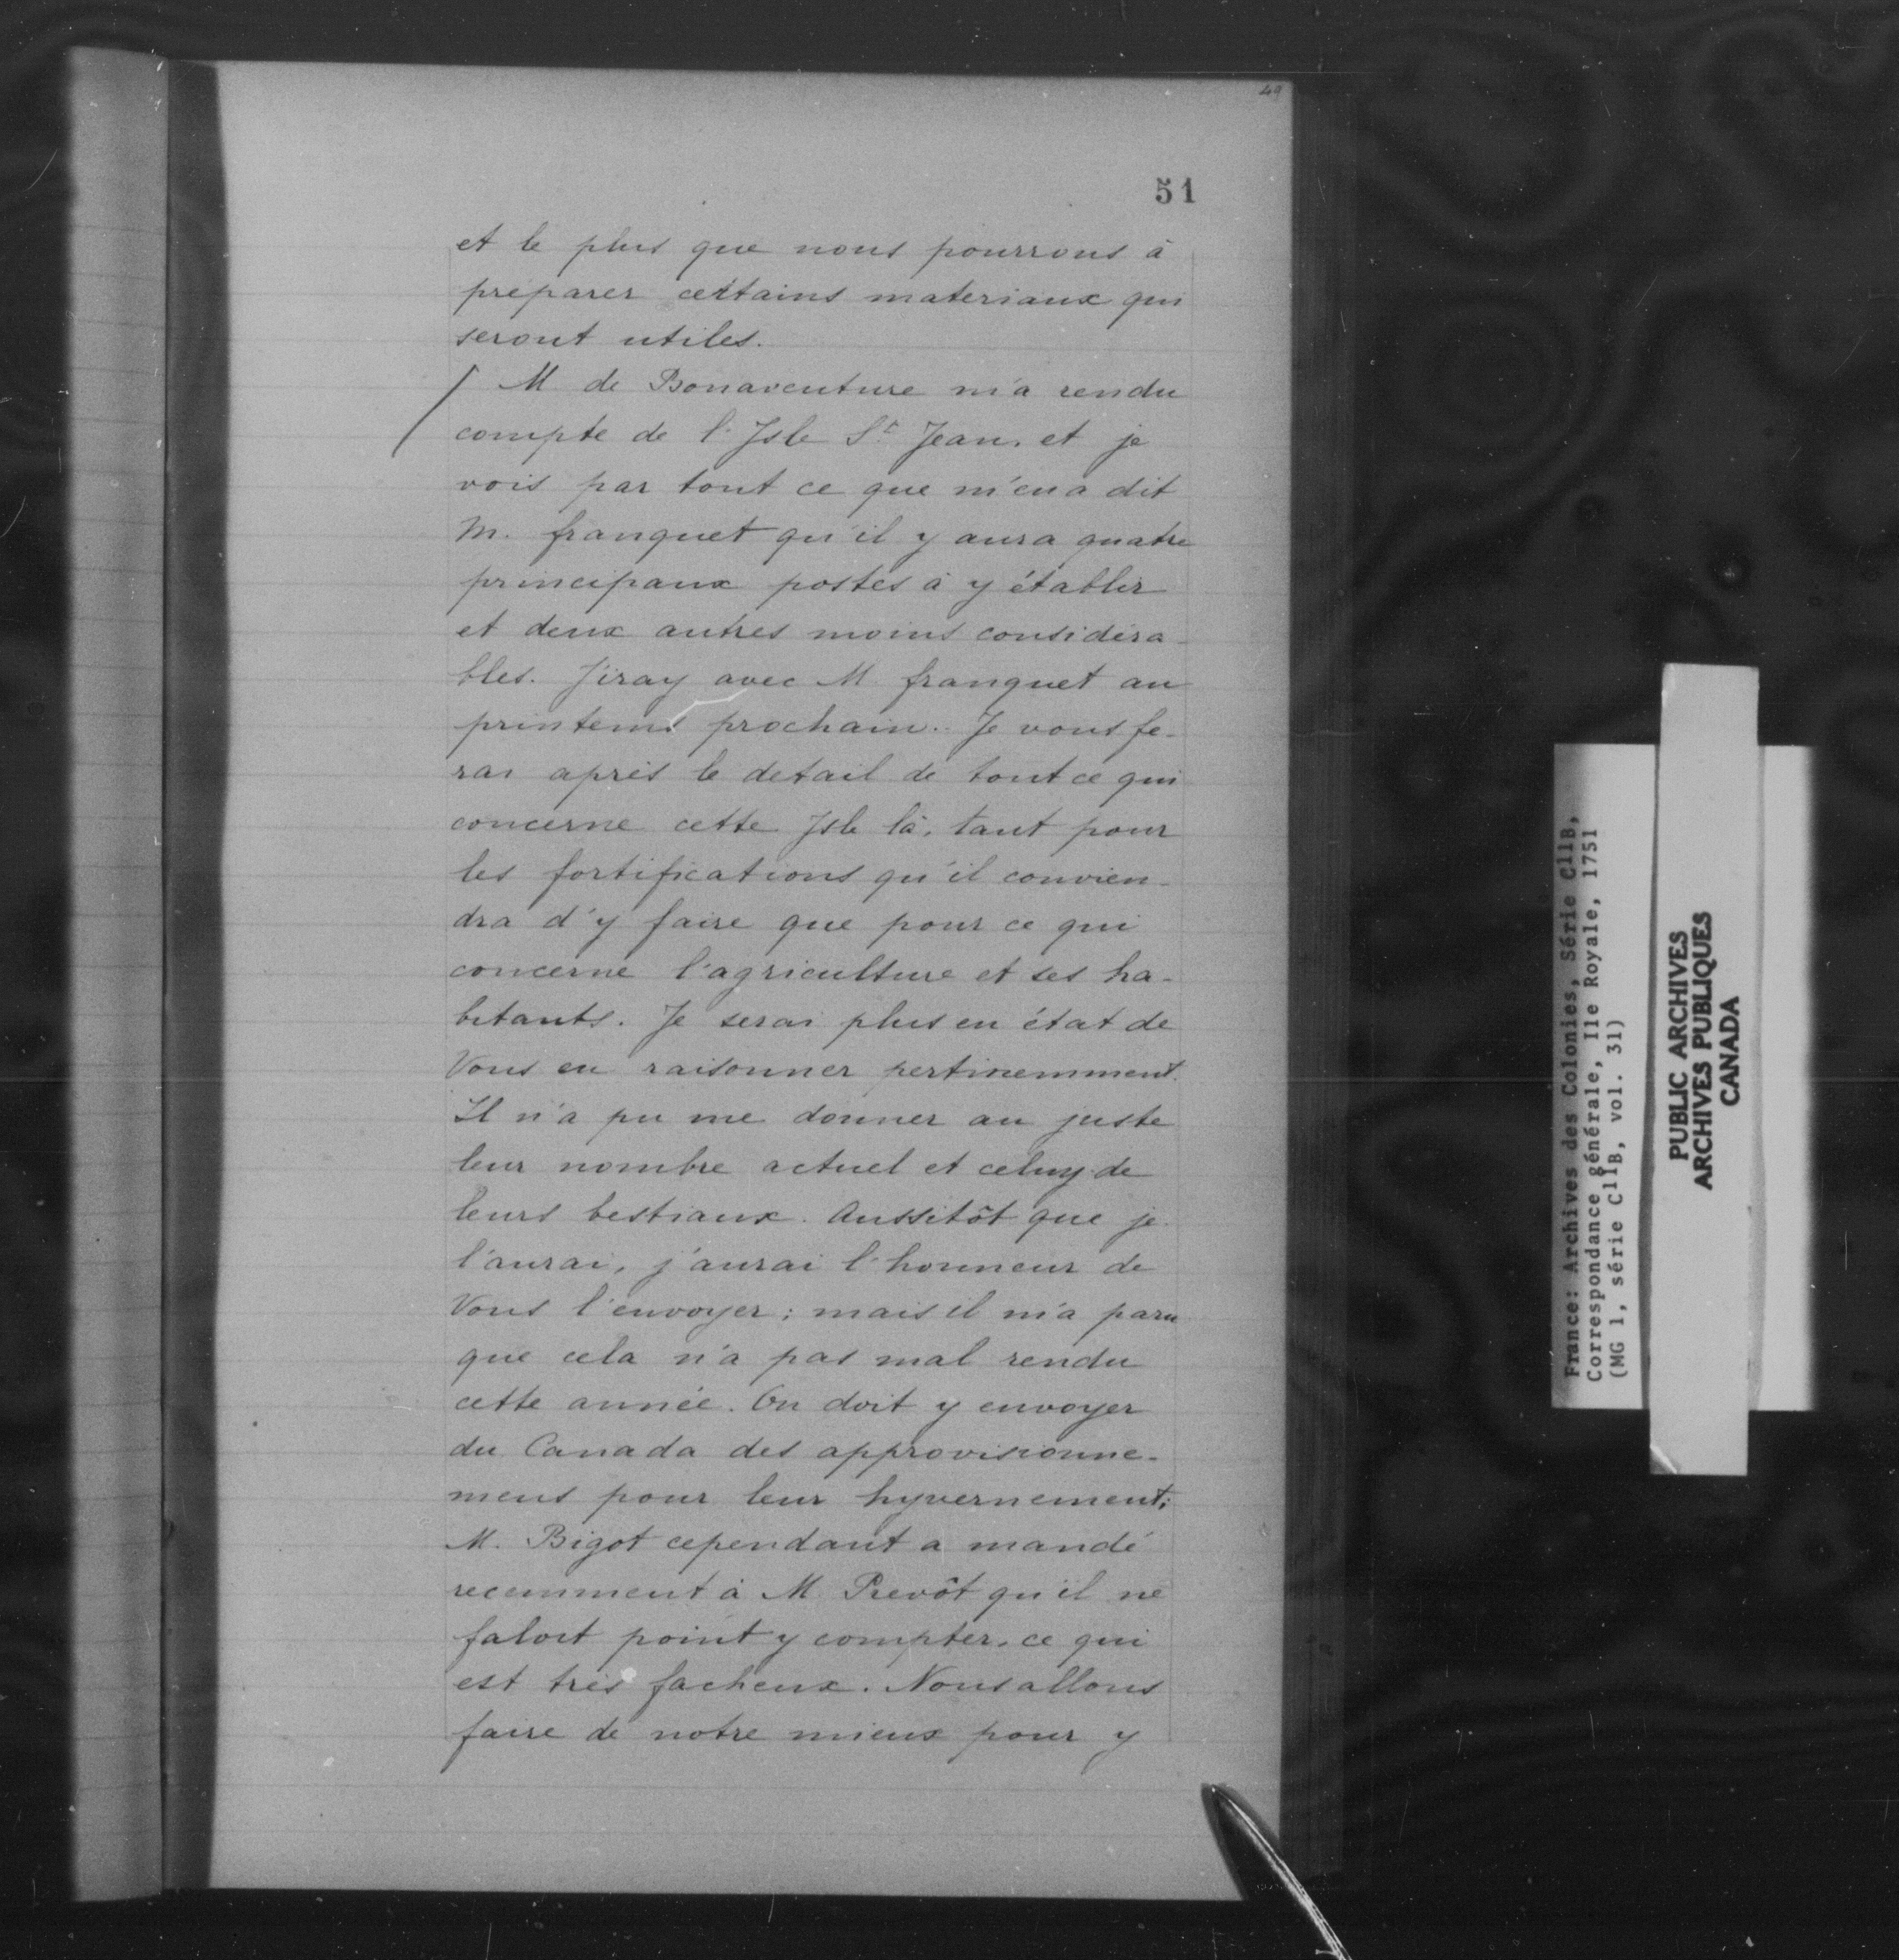 49
51
et le plus que nous pourrons à
preparer certains materiaux qui
seront utiles.
M de Bonaventure m'a rendu
compte de l'Isle St Jean, et je
vois par tout ce que m'en a dit
M. franquet qu'il y aura quatre
principaux postes à y établir
et deux autres moins considera-
bles. J'iray avec M franquet au
printems prochain. Je vous fe-
rai après le detail de tout ce qui
concerne cette Isle là, tant pour
les fortifications qu'il convien-
dra d'y faire que pour ce qui
concerne l'agriculture et ses ha-
bitants. Je serai plus en état de
Vous en raisonner pertinemment.
Il n'a pu me donner au juste
leur nombre actuel et celuy de
leurs bestiaux. Aussitôt que je
l'aurai, j'aurai l'honneur de
Vous l'envoyer; mais il m'a paru
que cela n'a pas mal rendu
cette année. On doit y envoyer
du Canada des approvisionne-
mens pour leur hyvernement;
M. Bigot cependant a mandé
recemment à M Prevôt qu'il ne
faloit point y compter, ce qui
est très facheux. Nous allons
faire de notre mieux pour y
France: Archives des Colonies, Série C11B,
Correspondance générale, Ile Royale, 1751
(MG 1, série C11B, vol. 31)
PUBLIC ARCHIVES
ARCHIVES PUBLIQUES
CANADA